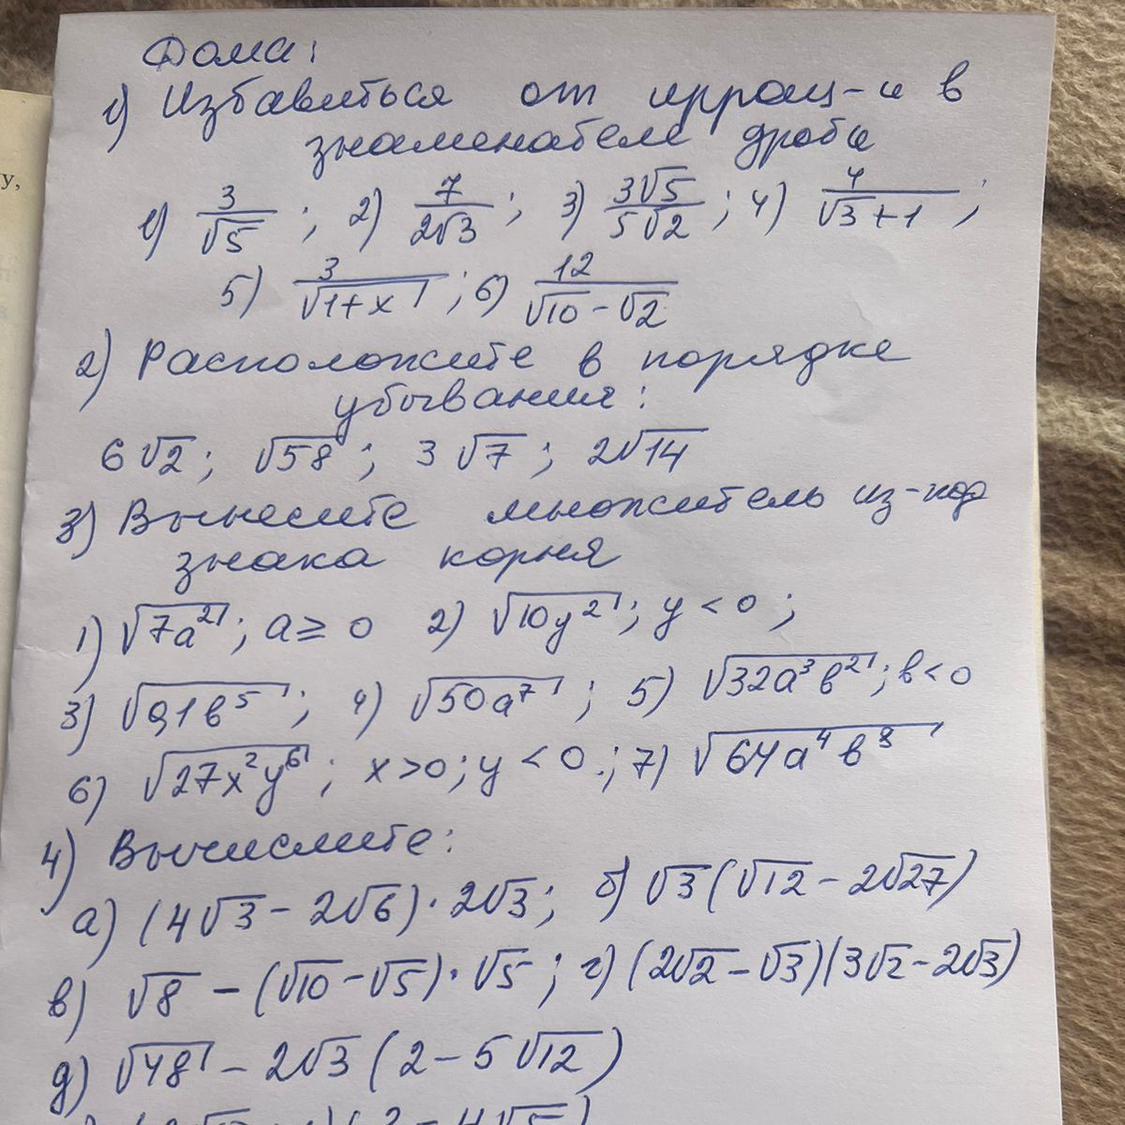 Дома:
1) Избавиться от иррац-и в
знаменателе дроби
1) 3/√5 ; 2) 7/2√3 ; 3) 3√5/5√2 ; 4) 4/√3+1 ;
5) 3/√1+x ; 6) 12/√10-√2
2) Расположите в порядке
убывания:
6√2; √58; 3√7; 2√14
3) Вынесите множитель из-под
знака корня
1) √7a²; a≥0 2) √10y²; y<0;
3) √0,1в⁵; 4) √50a⁷; 5) √32a³в²; в<0
6) √27x²y⁶; x>0; y<0.; 7) √64a⁴в⁸
4) Вычислите:
а) (4√3-2√6)·2√3; б) √3(√12-2√27)
в) √8-(√10-√5)·√5; г) (2√2-√3)(3√2-2√3)
д) √48-2√3(2-5√12)